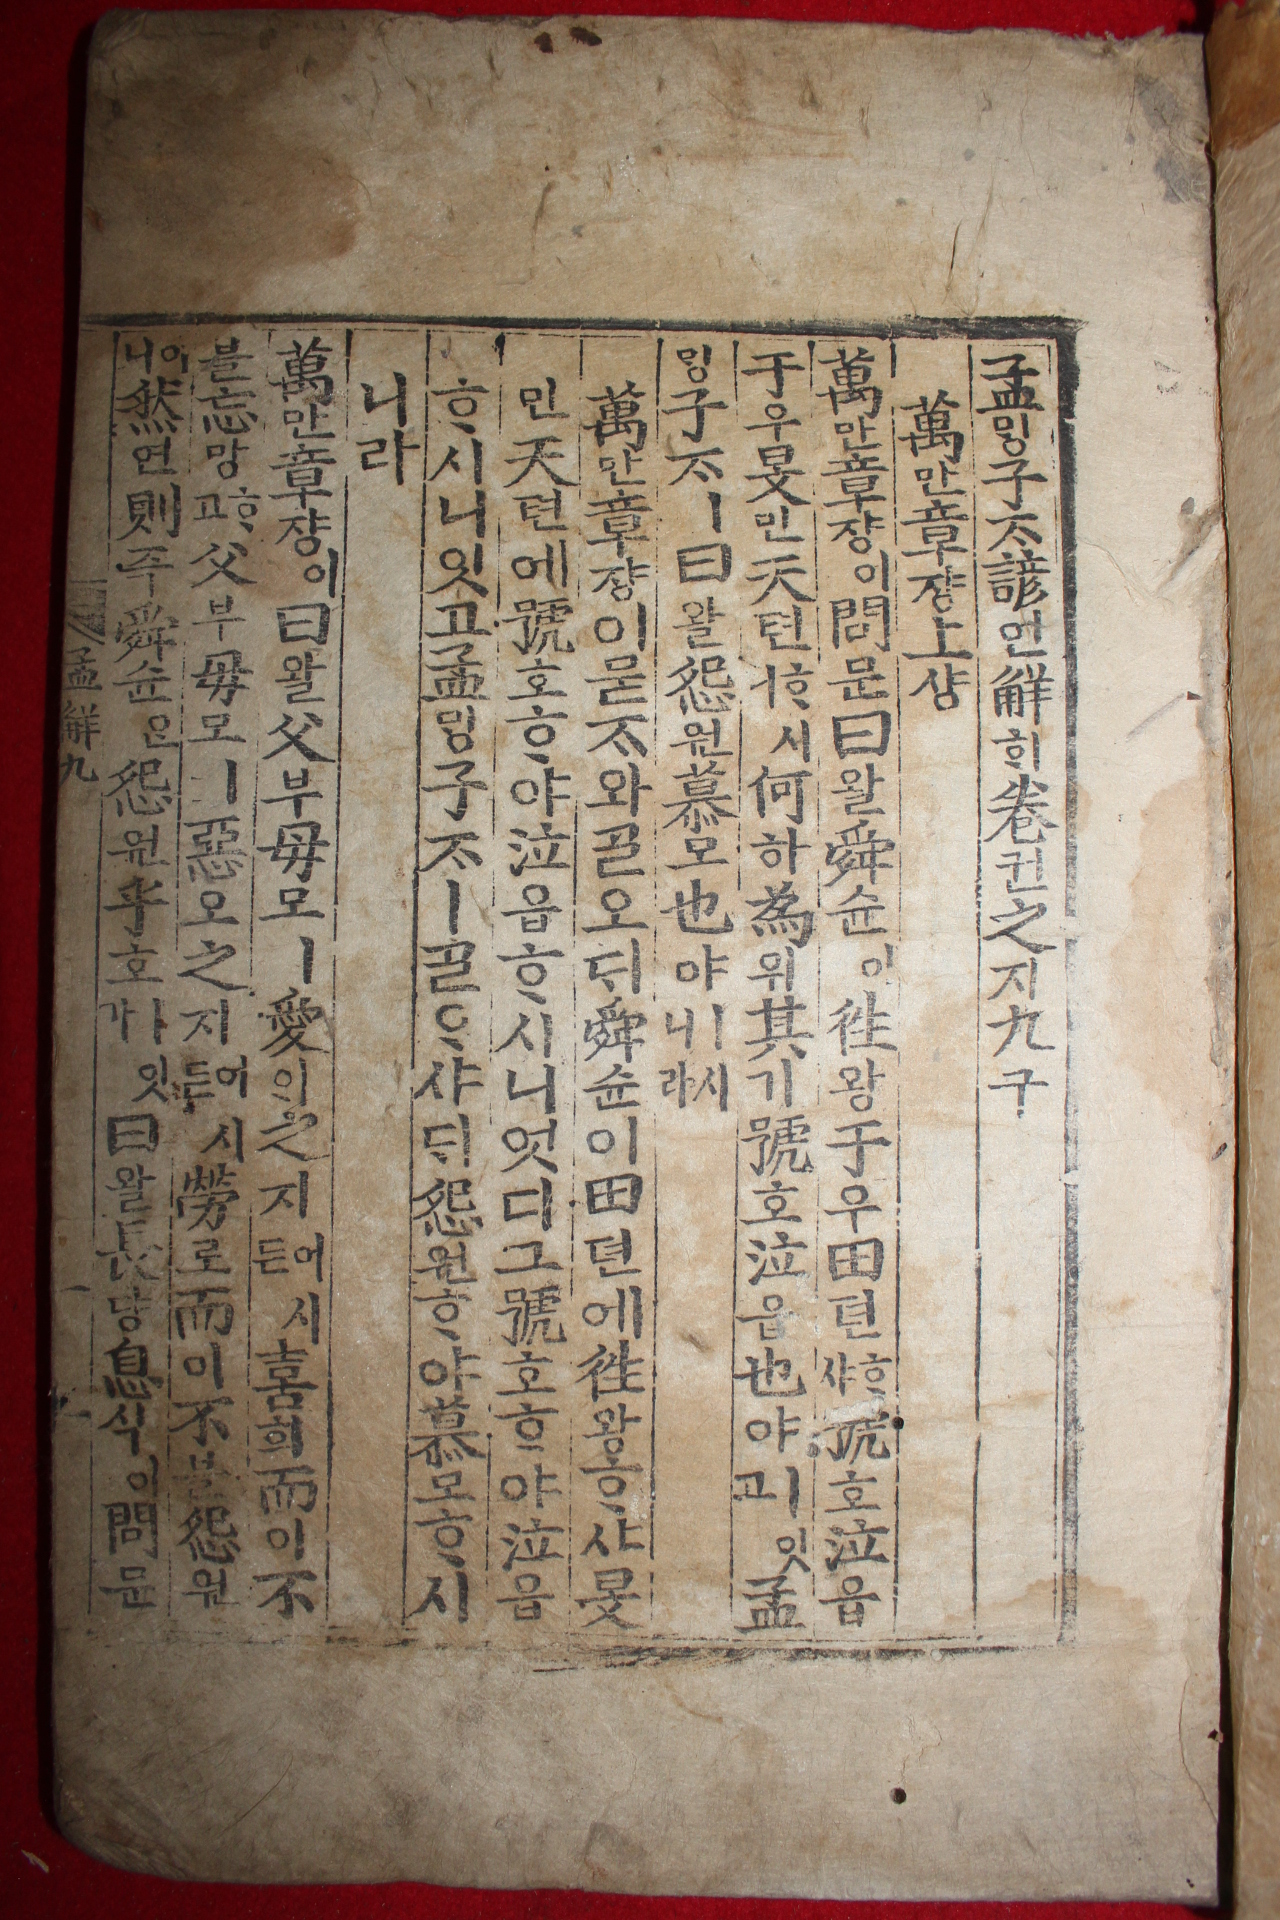 孟ᄆᆡᆼ子ᄌᆞ諺언解ᄒᆡ卷권之지九구
萬만章쟝上샹
萬만章쟝이問문曰왈舜슌이往왕于우田뎐ᄒᆞ샤號호泣읍
于우旻민天텬ᄒᆞ시니何하為위其기號호泣읍也야ㅣ잇고孟
ᄆᆡᆼ子ᄌᆞㅣ曰왈怨원慕모也야ㅣ시니라
萬만章쟝이묻ᄌᆞ와ᄀᆞᆯ오ᄃᆡ舜슌이田뎐에往왕ᄒᆞ샤旻
민天텬에號호ᄒᆞ야泣읍ᄒᆞ시니엇디그號호ᄒᆞ야泣읍
ᄒᆞ시니잇고孟ᄆᆡᆼ子ᄌᆞㅣᄀᆞᆯᄋᆞ샤ᄃᆡ怨원ᄒᆞ야慕모ᄒᆞ시
니라
萬만章쟝이曰왈父부母모ㅣ愛ᄋᆡ之지어시든喜희而이不
블忘망ᄒᆞ고父부母모ㅣ惡오之지어시든勞로而이不블怨원
이니然연則즉舜슌은怨원乎호ㅣ잇가曰왈長댱息식이問문
孟解九 一